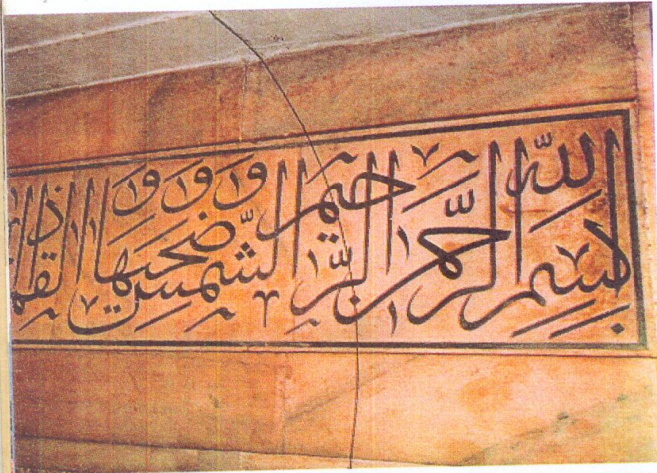 بسم الله الرحمن الرحيم والشمس وضحيها والقمر اذا